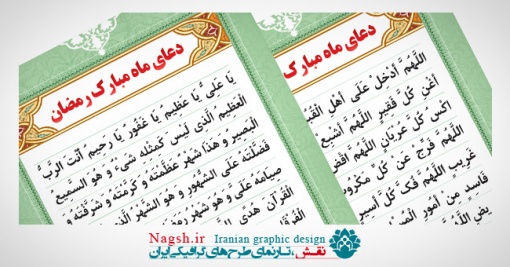 دعای ماه مبارک رمضان
یَا عَلِیُّ یَا عَظِیمُ یَا غَفُورُ یَا رَحِیمُ أَنْتَ الرَّبُّ
الْعَظِیمُ الَّذِی لَیْسَ کَمِثْلِهِ شَیْءٌ وَ هُوَ السَّمِیعُ
الْبَصِیرُ وَ هَذَا شَهْرٌ عَظَّمْتَهُ وَ کَرَّمْتَهُ وَ شَرَّفْتَهُ وَ
فَضَّلْتَهُ عَلَى الشُّهُورِ وَ هُوَ الشَّهْرُ الَّذِی
صِیَامَهُ عَلَیَّ وَ هُوَ شَهْرُ
الْقُرْآنَ هُدًى
دعای ماه مبارک
اللَّهُمَّ أَدْخِلْ عَلَى أَهْلِ
أَغْنِ کُلَّ فَقِیرٍ اللَّهُمَّ أَشْبِعْ
اکْسُ کُلَّ عُرْیَانٍ اللَّهُمَّ اقْضِ
اللَّهُمَّ فَرِّجْ عَنْ کُلِّ مَکْرُوبٍ
غَرِیبٍ اللَّهُمَّ فُکَّ کُلَّ أَسِیرٍ
فَاسِدٍ مِنْ أُمُورِ
Nagsh.ir Iranian graphic design
نقش، تارنمای طرح‌های گرافیکی ایران